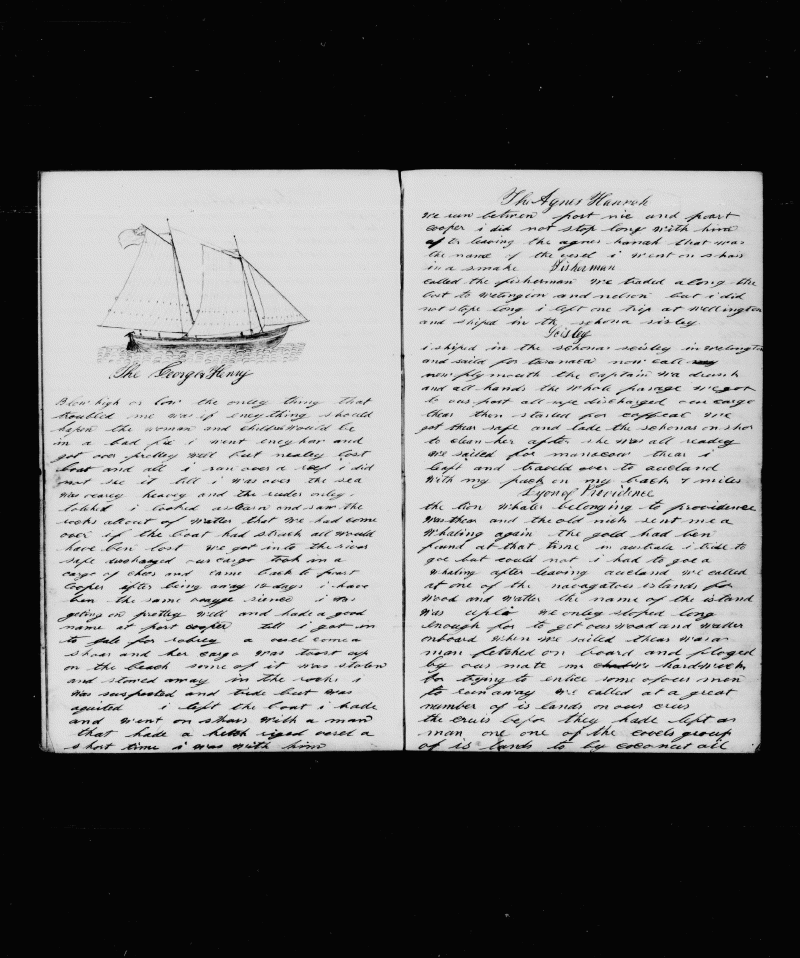 The George Henry
Blow high or low the onley thing that
troubled me was if eneything should
hapen the woman and children would be
in a bad fix i went eney how and
got over prettey well but nealey lost
boat and all i ran over a reef i did
not see it till i was over the sea
was vearey heavey and the ruder onley
totched i looked astarn and saw the
rocks all out of watter that we had come
over if the boat had struck all would
have ben lost we got into the river
safe discharged our cargo took in a
cargo of and came back to port
Cooper after being away 12 days i have
ben the same sience i was
geting on prettey well and hade a good
name at port cooper till i got in
to gale for robrey a vesel come a
shoar and her cargo was toast up
on the beach some of it was stolen
and stowed away in the rocks i
was suspected and tride but was
aquited i left the boat i hade
and went on shoar with a man
that hade a ketch riged vesel a
short time i was with him
The Agnes Hannah
we run between port nic and poart
cooper i did not stop long with him
after leaving the agnes hanah that was
the name of the vesel i went on shoar
in a smake Fisherman
called the fisherman we traded along the
cost to wetengton and nelson but i did
not stope long i left one trip at wellington
and shiped in the schona sisley
Seisley
i shiped in the schonar seisley in welington
and saild for tearanaca now call
new plymouth the captain was drunk
and all hands the whole pasage we got
to our port all safe discharged our cargo
thear then started for we
got thear safe and lade the schonar on shor
to clean her after she was all readey
we sailed for manacow thear i
left and traveld over to aucland
with my pack on my back 7 miles
Lyon of Providence
the lion whaler belonging to providence
was thear and the old nick sent me a
whaling again the gold had ben
found at that time in australia i tride to
goe but could not i had to goe a
whaling after leaving aucland we called
at one of the navagators islands for
wood and watter the name of the island
was uplo we onley stoped long
enough for to get our wood and watter
onboard when we sailed thear was a
man fetched on board and floged
by our mate in hardwech
for trying to entice some of our men
to run away we called at a great
number of is lands on our crus
the crus befor they hade left a
man one one of the covels group
of is lands to by coconut oil